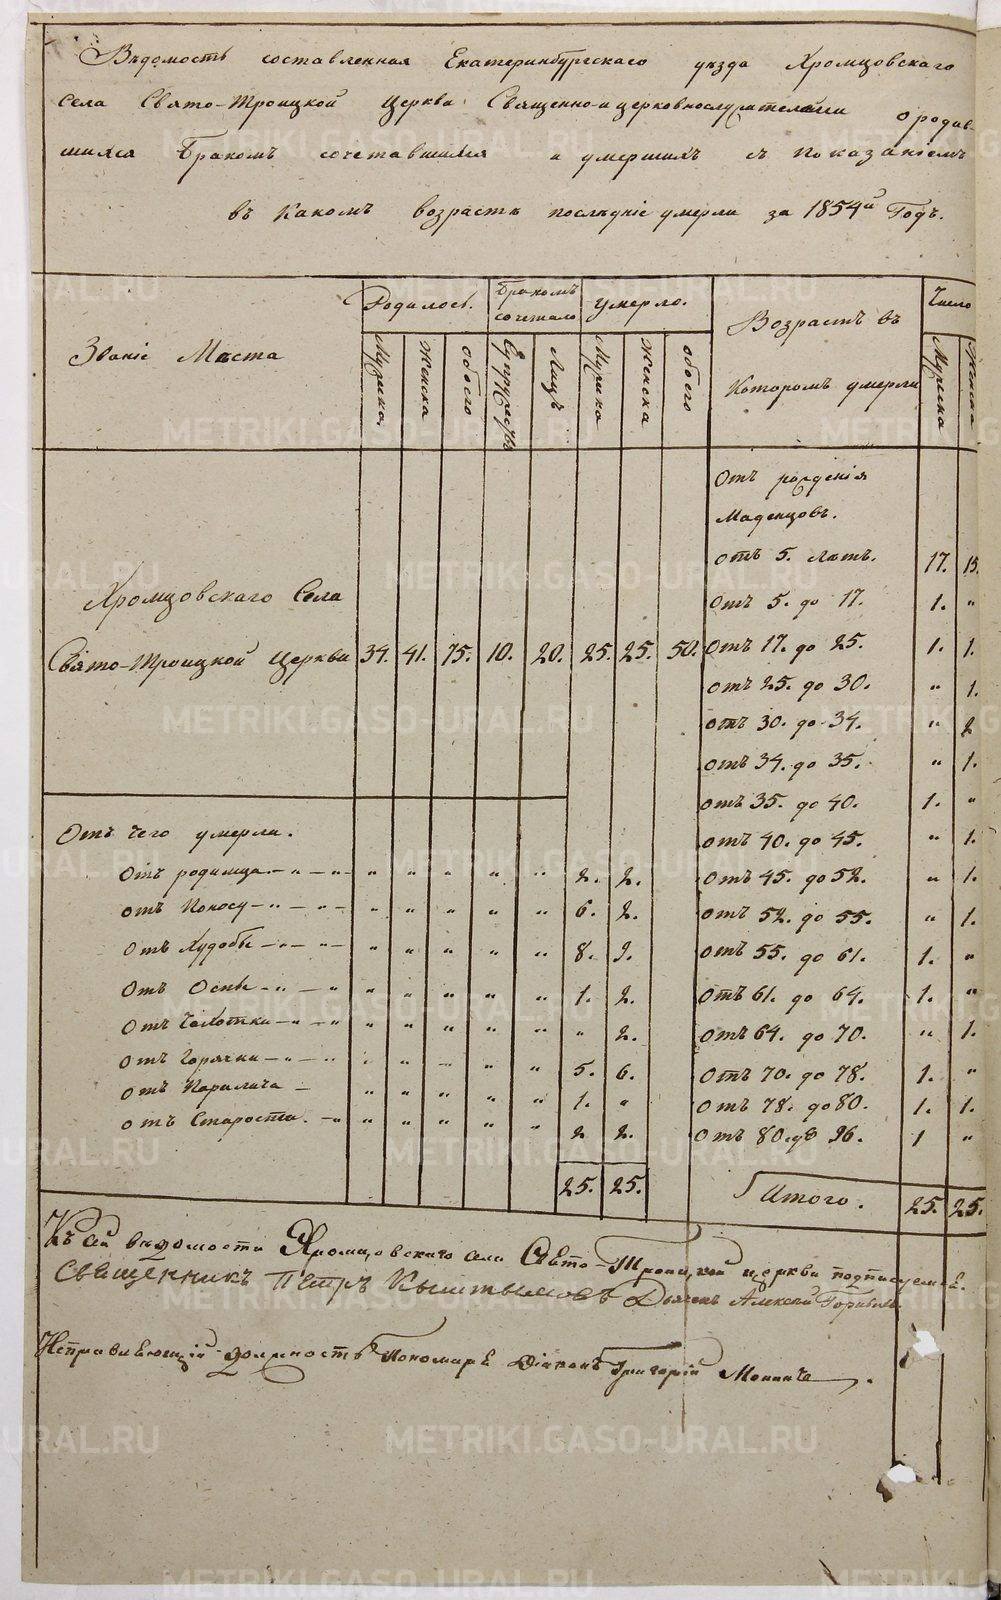 Вѣдомость составленная Екатеринбургскаго уѣзда Хромцовскаго
села Свято-Троицкой Церкви Священно-и церковнослужителями о родив-
шихся Бракомъ сочетавшихся и умершихъ съ показаніемъ
въ какомъ возрастѣ послѣдніе умерли за 1854й Годъ.
Званіе Мѣста
Родилось.
Бракомъ сочетало
умерло.
Возрастъ въ
Которомъ умерли
Число
Мужска
Женска
обоего
Супружествъ
Лицъ
Мужска
Женска
обоего
Мужска
Женска
Отъ рожденія
Маденцовъ.
отъ 5. лѣтъ. 17. 15.
Отъ 5. до 17. 1. "
Хромцовскаго Села
Свято-Троицкой Церкви 34. 41. 75. 10. 20. 25. 25. 50.
Отъ 17. до 25. 1. 1.
отъ 25. до 30. " 1.
отъ 30. до 34. " 2
отъ 34. до 35. " 1.
отъ 35. до 40. 1. "
отъ 40. до 45. " 1.
отъ 45. до 52. " 1.
отъ 52. до 55. " 1.
отъ 55. до 61. 1. "
Отъ 61. до 64. 1. "
отъ 64. до 70. " 1.
отъ 70. до 78. 1. "
отъ 78. до 80. 1. 1.
отъ 80. до 96. 1 "
Итого. 25. 25.
Отъ чего умерли.
Отъ родимца " " " " " 2. 2.
отъ Поносу " " " " " 6. 2.
отъ Худобы " " " " " 8. 9.
отъ Оспы " " " " " 1. 2.
отъ Чахотки " " " " " " 2.
отъ Горячки " " " " " 5. 6.
отъ Паралича " " " " " 1. "
отъ Старости. " " " " " 2 2.
25. 25.
Къ сей вѣдомости Хромцовскаго села Свято-Троицкой церкви подписуемся.
Священникъ Петръ Кыштымовъ Дьячекъ Алексѣй
Исправляющій должность Пономаря Діаконъ Григорій
METRIKI.GASO-URAL.RU